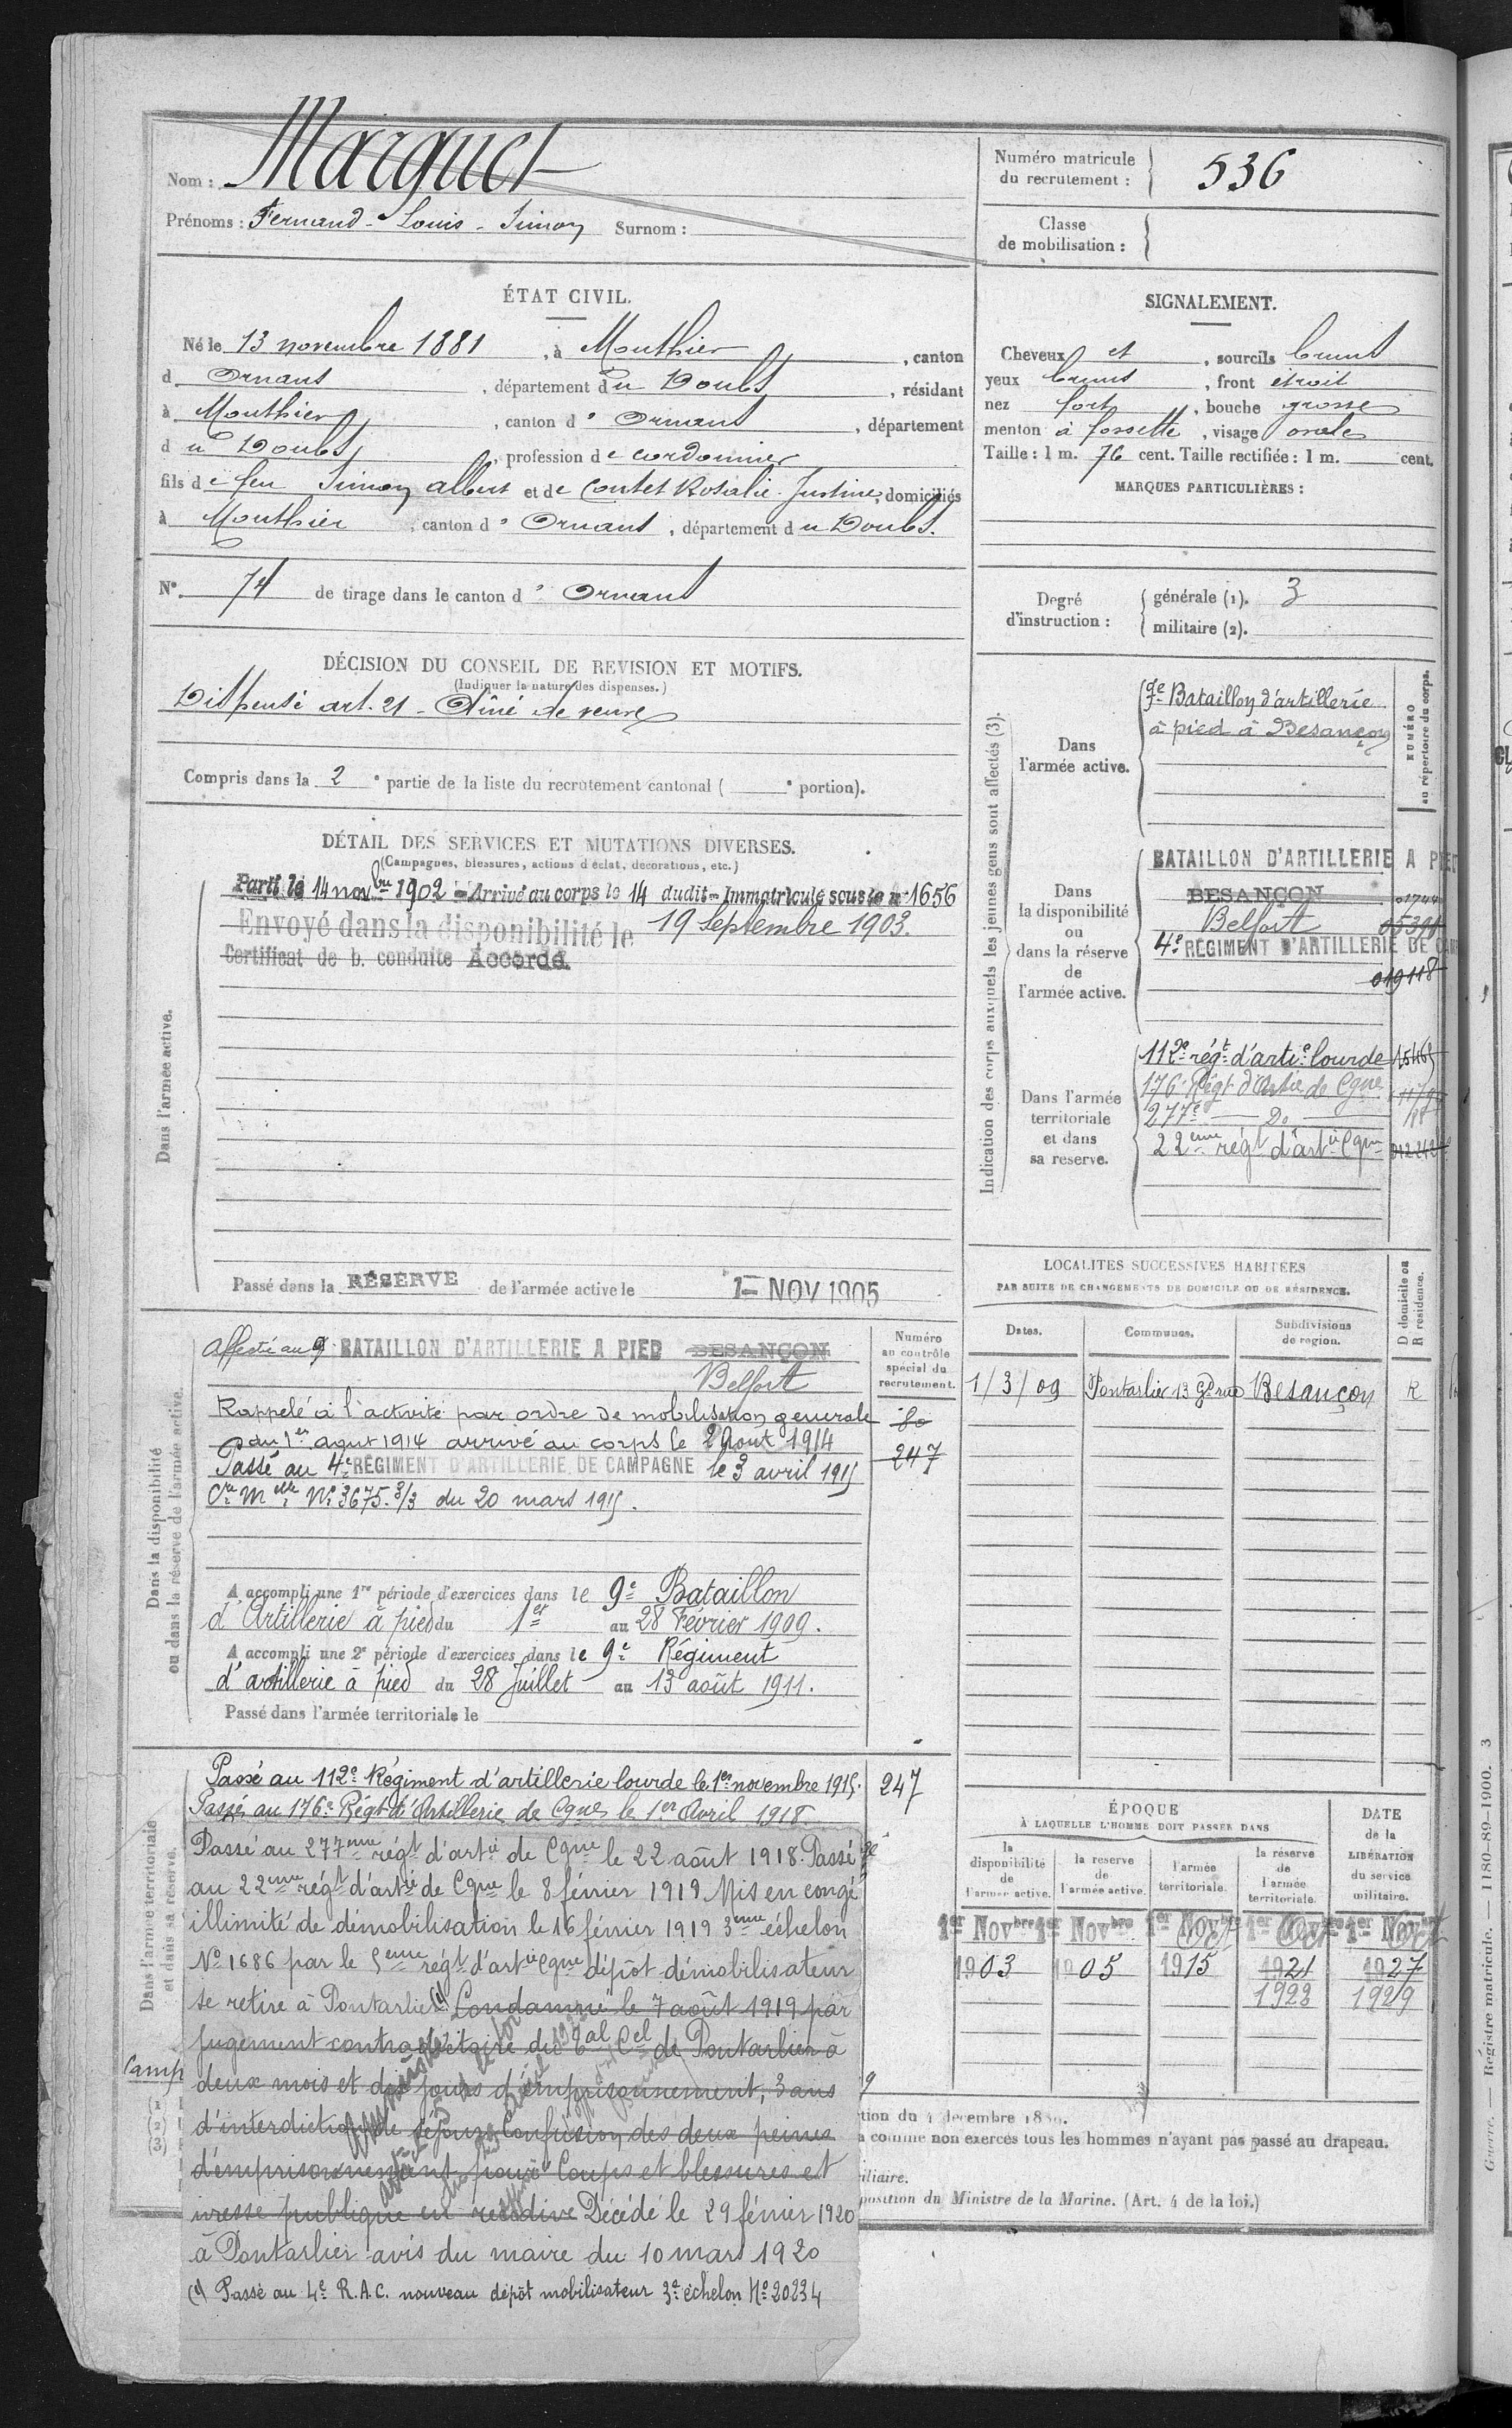 Nom : Marguet
Prénoms : Fernand - Louis - Simon Surnom :
Numéro matricule du recrutement : 536
Classe de mobilisation :
ÉTAT CIVIL.
Né le 13 novembre 1881, à Mouthier, canton
d' Ornans, département du Doubs, résidant
à Mouthier, canton d' Ornans, département
du Doubs, profession de cordonnier
fils de feu Simon Albert et de Coutet Rosalie Justine, domiciliés
à Mouthier, canton d' Ornans, département du Doubs.
N° 74 de tirage dans le canton d' Ornans
SIGNALEMENT.
Cheveux et, sourcils bruns
yeux bruns, front étroit
nez fort, bouche grosse
menton à fossette, visage ovale
Taille : 1 m. 76 cent. Taille rectifiée : 1 m. cent.
MARQUES PARTICULIÈRES :
Degré d'instruction :
générale (1). 3
militaire (2).
DÉCISION DU CONSEIL DE REVISION ET MOTIFS.
(Indiquer la nature des dispenses.)
Dispensé art. 21 - Aîné de veuve
Compris dans la 2e partie de la liste du recrutement cantonal ( e portion).
DÉTAIL DES SERVICES ET MUTATIONS DIVERSES.
(Campagnes, blessures, actions d'éclat, décorations, etc.)
Dans l'armée active.
Parti le 14 novbre 1902 - Arrivé au corps le 14 dudit - Immatriculé sous le n° 1656
Envoyé dans la disponibilité le 19 Septembre 1903.
Certificat de b. conduite Accordé
Passé dans la RÉSERVE de l'armée active le 1er NOV 1905
Indication des corps auxquels les jeunes gens sont affectés (3).
NUMÉRO au répertoire du corps.
Dans l'armée active.
9e Bataillon d'artillerie
à pied à Besançon
Dans la disponibilité ou dans la réserve de l'armée active.
BATAILLON D'ARTILLERIE A PIED
BESANÇON
Belfort
4e RÉGIMENT D'ARTILLERIE DE CAM
019118
Dans l'armée territoriale et dans sa reserve.
112e régt d'artie lourde
176e Régt d'Artie de Cgne
277e — Do —
22eme régt d'artie Cgne
LOCALITÉS SUCCESSIVES HABITÉES
PAR SUITE DE CHANGEMENTS DE DOMICILE OU DE RÉSIDENCE.
Dates. Communes. Subdivisions de région. D domicile ou R résidence.
1/3/09 Pontarlier 13 Gde rue Besançon R
Dans la disponibilité ou dans la réserve de l'armée active.
Numéro au contrôle spécial du recrutement.
Affecté au 9e BATAILLON D'ARTILLERIE A PIED BESANÇON
Belfort
Rappelé à l'activité par ordre de mobilisation générale
du 1er août 1914 arrivé au corps le 2 Aout 1914
247
Passé au 4e RÉGIMENT D'ARTILLERIE DE CAMPAGNE le 3 avril 1915
Cre Melle No 3675.3/3 du 20 mars 1915.
A accompli une 1re période d'exercices dans le 9e Bataillon
d'Artillerie à pied du 1er au 28 Février 1909.
A accompli une 2e période d'exercices dans le 9e Régiment
d'artillerie à pied du 28 Juillet au 13 août 1911.
Passé dans l'armée territoriale le
Dans l'armée territoriale et dans sa réserve.
Passé au 112e Régiment d'artillerie lourde le 1er novembre 1915. 247
Passé au 176e Régt d'Artillerie de Cgne le 1er Avril 1918.
Passé au 277eme régt d'artie de Cgne le 22 août 1918. Passé
au 22eme régt d'artie de Cgne le 8 février 1919 Mis en congé
illimité de démobilisation le 16 février 1919 3eme échelon
No 1686 par le 5eme régt d'artie Cgne dépôt démobilisateur
se retire à Pontarlier (1) Condamné le 7 août 1919 par
jugement contradictoire du Tal Cel de Pontarlier à
deux mois et dix jours d'emprisonnement, 3 ans
d'interdiction de séjour Confusion des deux peines
d'emprisonnement pour Coups et blessures et
ivresse publique en récidive Décédé le 29 février 1920
à Pontarlier avis du maire du 10 mars 1920
(1) Passé au 4e R.A.C. nouveau dépôt mobilisateur 3e échelon No 20234
Camp
ÉPOQUE
À LAQUELLE L'HOMME DOIT PASSER DANS
la disponibilité de l'armée active. la réserve de l'armée active. l'armée territoriale. la réserve de l'armée territoriale.
DATE de la LIBÉRATION du service militaire.
1er Novbre 1er Novbre 1er Novbre 1er Nov 1er Nov
1903 1905 1915 1921 1927
1923 1929
comme non exercés tous les hommes n'ayant pas passé au drapeau.
position du Ministre de la Marine. (Art. 4 de la loi.)
Guerre. — Registre matricule. — 1180-89-1900. 3